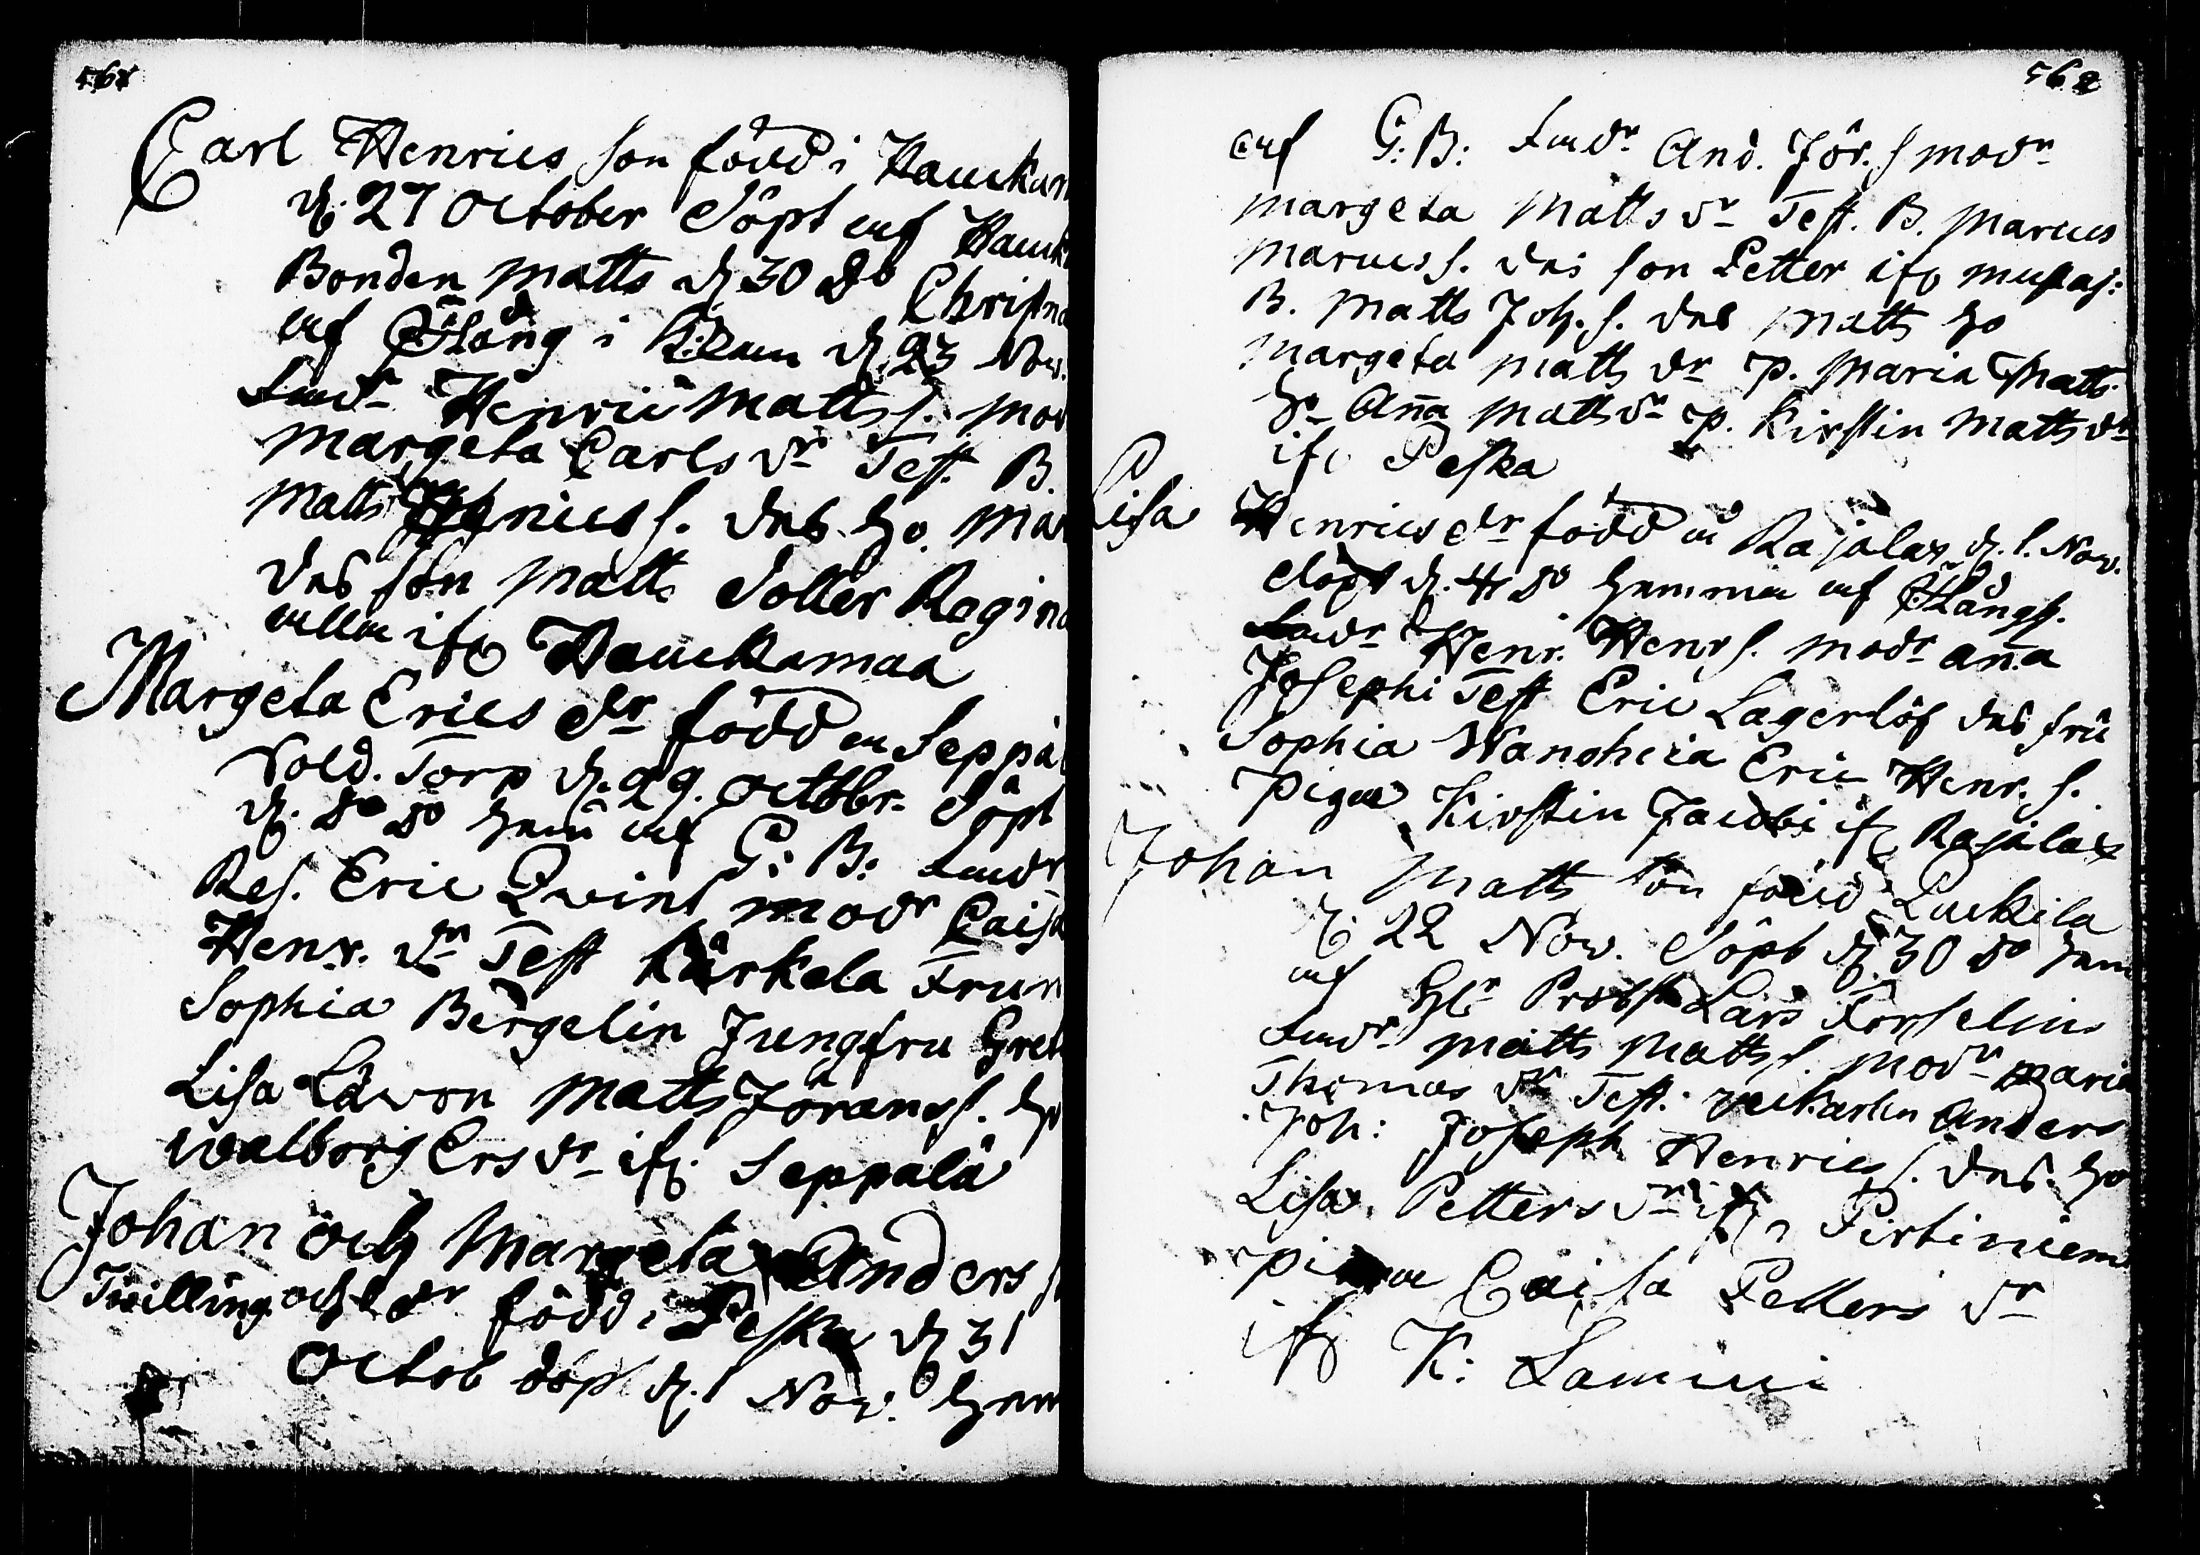 561
Carl Henrics son född i Hauckam
d. 27 October döpt af Hauck
Bonden Matts d 30 do Christna
af Ståhlg i K: d. 23 Nov.
Fadr Henric Matts s. mod
Margeta Carls dr Test. B.
Matts Henrics s. des ho. Mar
des son Matts dotter Regina
alla ifr Hauckamaa
Margeta Erics dr född a Seppäl
Sold. Torp d. 29. octobr. döpt
d. do hem af G: B: Fadr
Res. Eric Qvint modr Caisa
Henr. dr Test Kärkela Frun
Sophia Bergelin Jungfru Gret
Lisa Lävon Matts Jörans s. ho
Walborg Ers dr ifr. Seppälä
Johan och Margeta Anders s
Twilling och dr född i Peska d 31
Octob döpt d. 1 Nov. hem
562
af G: B: Fadr And. Jör. s modr
Margeta Matts dr Test. B. Marcus
Marcus s. des son Petter ifr
B. Matts Joh. s. des Matts ho
Margeta Matts dr p. Maria Matts
dr Anna Matts dr p. Kirstin Matts dr
ifr Peska
Lisa Henrics dr född a Rajalax d. 1. Nov.
döpt d. 4 do hemma af
Fadr Henr. Henr s. modr Anna
Josephi Test Eric Lagerlöf des fru
Sophia Wanoheia Eric Henr. s.
Pigan Kirstin Jacobi ifr Rajalax
Johan Matts son född Luckila
d. 22 Nov. döpt d. 30 do hem
af Hr Probst Lars Forselius
Fadr Matts Matts s. modr Maria
Thomas dr Test: Anders
Joh: Joseph Henrics s. des ho
Lisa Petters dr ifr Pirtiniem
Pigan Caisa Petters dr
ifr K: Lamini